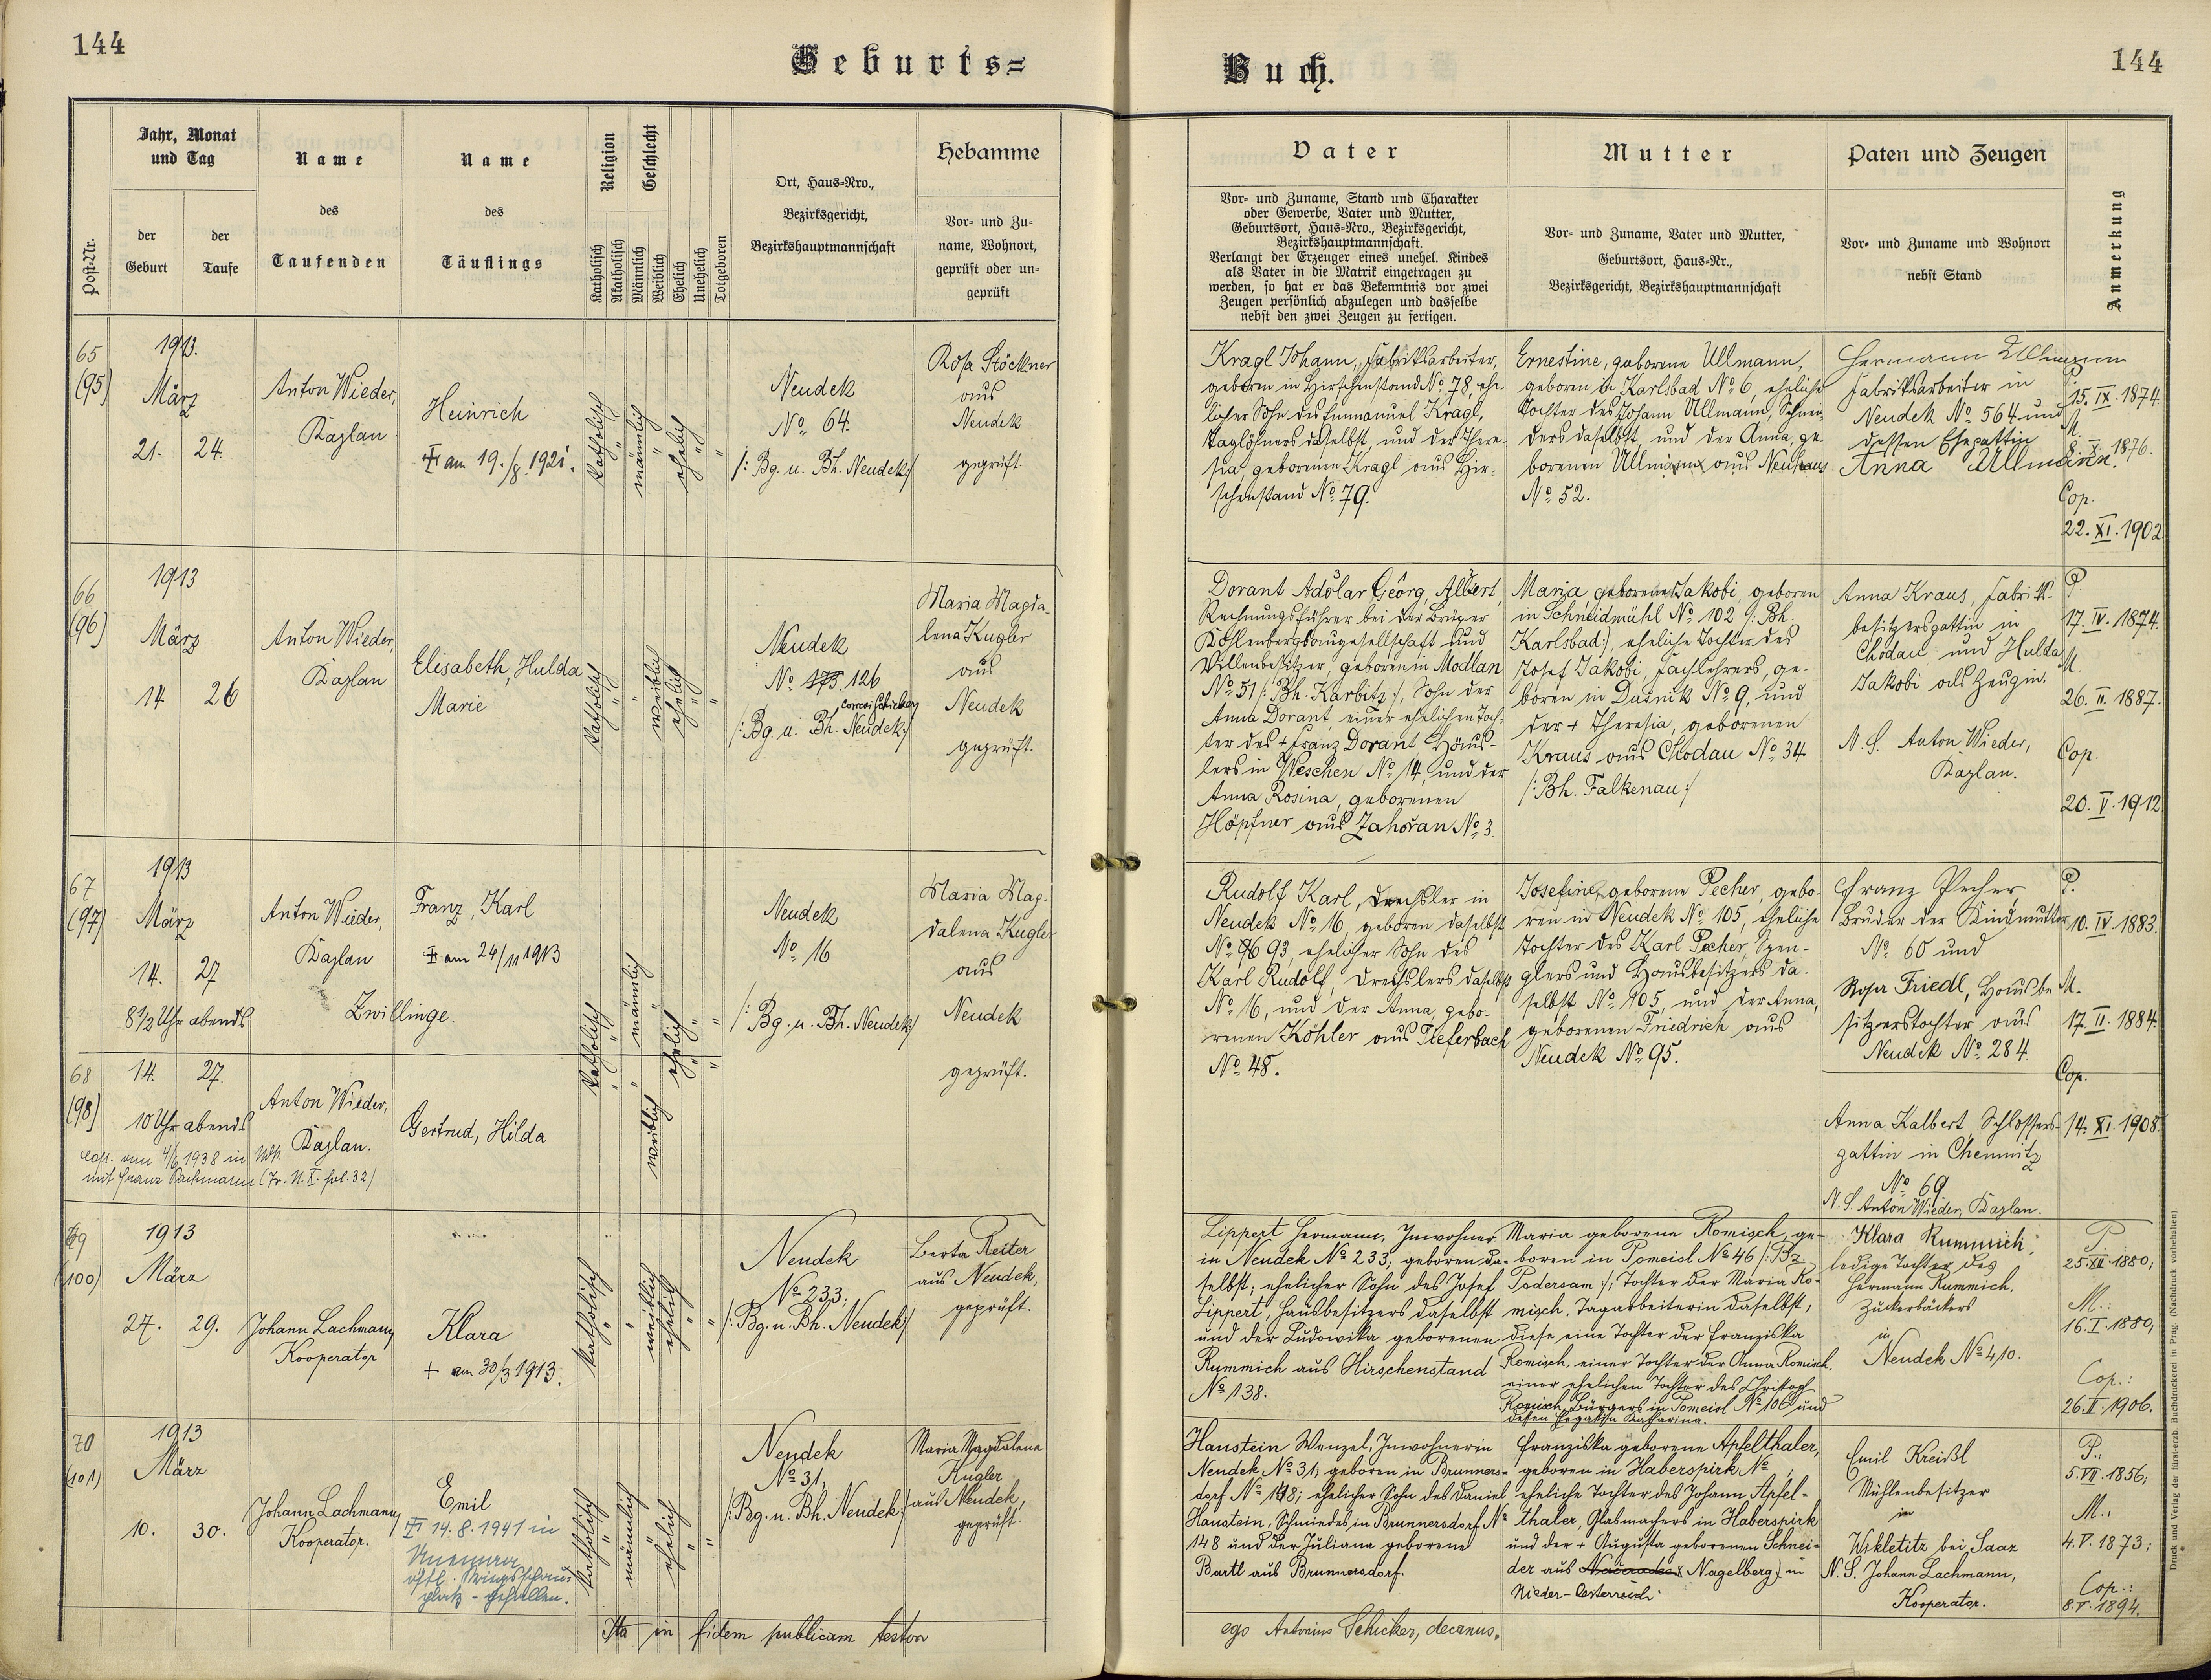 144
Geburts=
Buch.
144
Post-Nr.
Jahr, Monat
und Tag
der
Geburt
der
Taufe
Name
des
Taufenden
Name
des
Täuflings
Religion
Katholisch
Akatholisch
Geschlecht
Männlich
Weiblich
Ehelich
Unehelich
Totgeboren
Ort, Haus-Nro.,
Bezirksgericht,
Bezirkshauptmannschaft
Hebamme
Vor- und Zu-
name, Wohnort,
geprüft oder un-
geprüft
Vater
Vor- und Zuname, Stand und Charakter
oder Gewerbe, Vater und Mutter,
Geburtsort, Haus-Nro., Bezirksgericht,
Bezirkshauptmannschaft.
Verlangt der Erzeuger eines unehel. Kindes
als Vater in die Matrik eingetragen zu
werden, so hat er das Bekenntnis vor zwei
Zeugen persönlich abzulegen und dasselbe
nebst den zwei Zeugen zu fertigen.
Mutter
Vor- und Zuname, Vater und Mutter,
Geburtsort, Haus-Nr.,
Bezirksgericht, Bezirkshauptmannschaft
Paten und Zeugen
Vor- und Zuname und Wohnort
nebst Stand
Anmerkung
65
(95)
1913.
März
21. 24.
Anton Wieder,
Kaplan
Heinrich
am 19./8. 1921.
katholisch
männlich
ehelich
Neudek
No. 64.
/: Bg. u. Bh. Neudek:/
Rosa Stöckner
aus
Neudek
geprüft.
Kragl Johann, Fabriksarbeiter,
geboren in Hirschenstand No. 78, ehe-
licher Sohn des Emmanuel Kragl,
Taglöhners daselbst, und der There-
sia, geborenen Kragl aus Hir-
schenstand No. 79.
Ernestine, geborene Ullmann,
geboren in Karlsbad No. 6, eheliche
Tochter des Johann Ullmann, Schnei-
ders daselbst, und der Anna, ge-
borenen Ullmann aus Neuhaus
No. 52.
Hermann Ullmann
Fabriksarbeiter in
Neudek No. 564 und
dessen Ehegattin
Anna Ullmann.
P.
15. IX. 1874.
M.
8. X. 1876.
Cop.
22. XI. 1902.
66
(96)
1913
März
14 26
Anton Wieder,
Kaplan
Elisabeth, Hulda
Marie
katholisch
weiblich
ehelich
Neudek
No. 175 126
corroi Schicker
/: Bg. u. Bh. Neudek:/
Maria Magda-
lena Kugler
aus
Neudek
geprüft.
Dorant Adolar Georg, Albert,
Rechnungsführer bei der Brüxer
Kohlenbergbaugesellschaft und
Villenbesitzer, geboren in Modlan
No. 51 /: Bh. Karbitz:/, Sohn der
Anna Dorant, einer ehelichen Toch-
ter des + Franz Dorant Häus-
lers in Weschen No. 14, und der
Anna Rosina, geborenen
Höpfner aus Zahořan No. 3.
Maria geborene Jakobi, geboren
in Schneidmühl No. 102 /: Bh.
Karlsbad:/, eheliche Tochter des
Josef Jakobi, Fachlehrers, ge-
boren in Dušnik No. 9, und
der + Theresia, geborenen
Kraus aus Chodau No. 34
/: Bh. Falkenau:/
Anna Kraus, Fabriks-
besitzersgattin in
Chodau und Hulda
Jakobi als Zeugin.
N. S. Anton Wieder,
Kaplan.
P.
17. IV. 1874.
M.
26. II. 1887.
Cop.
20. V. 1912.
67
(97)
1913
März
14. 27
8 1/2 Uhr abends
Anton Wieder,
Kaplan
Franz, Karl
am 24/11 1913
Zwillinge.
katholisch
männlich
ehelich
Neudek
No. 16
/: Bg. u. Bh. Neudek:/
Maria Mag-
dalena Kugler
aus
Neudek
geprüft.
Rudolf Karl, Drechsler in
Neudek No. 16, geboren daselbst
No. 93, ehelicher Sohn des
Karl Rudolf, Drechslers daselbst
No. 16, und der Anna, gebo-
renen Köhler aus Tieferbach
No. 48.
Josefine, geborene Pecher, gebo-
ren in Neudek No. 105, eheliche
Tochter des Karl Pecher, Spen-
glers und Hausbesitzers da-
selbst No. 105, und der Anna,
geborenen Friedrich aus
Neudek No. 95.
Franz Pecher,
Bruder der Kindmutter
No. 60 und
Rosa Friedl, Hausbe-
sitzerstochter aus
Neudek No. 284.
P.
10. IV. 1883.
M.
17. II. 1884.
Cop.
14. XI. 1908.
68
(98)
14. 27.
10 Uhr abends
Anton Wieder,
Kaplan.
Gertrud, Hilda
weiblich
Cop. am 4/6 1938 in
mit Franz Bachmann (Tr. N. X. fol. 32)
Anna Kalbert Schlossers-
gattin in Chemnitz
No. 69
N. S. Anton Wieder, Kaplan.
69
(100)
1913
März
27. 29.
Johann Lachmann,
Kooperator
Klara
+ am 30/3 1913.
katholisch
weiblich
ehelich
Neudek
No. 233;
/: Bg. u. Bh. Neudek:/
Berta Reiter
aus Neudek,
geprüft.
Lippert Hermann, Inwohner
in Neudek No. 233; geboren da-
selbst; ehelicher Sohn des Josef
Lippert, Hausbesitzers daselbst
und der Ludowika geborenen
Rummich aus Hirschenstand
No. 138.
Maria geborene Romisch, ge-
boren in Pomeisl No. 46 /: Bz.
Podersam:/; Tochter der Maria Ro-
misch, Tagarbeiterin daselbst;
diese eine Tochter der Franziska
Romisch, einer Tochter der Anna Romisch,
einer ehelichen Tochter des Christoph
Romisch, Bürgers in Pomeisl No. 106 und
dessen Ehegattin Katharina.
Klara Rummich,
ledige Tochter des
Hermann Rummich,
Zuckerbäckers
in
Neudek No. 410.
P.
25. XII. 1880;
M.:
16. I. 1880;
Cop.:
26. V. 1906.
70
(101)
1913
März
10. 30.
Johann Lachmann,
Kooperator.
Emil
14. 8. 1941 in
östl. Kriegsschau-
platz - gefallen.
katholisch
männlich
ehelich
Neudek
No. 31,
/: Bg. u. Bh. Neudek:/
Maria Magdalena
Kugler
aus Neudek,
geprüft.
Hanstein Wenzel, Inwohner in
Neudek No. 31; geboren in Brunners-
dorf No. 148; ehelicher Sohn des Daniel
Hanstein, Schmiedes in Brunnersdorf No.
148 und der Juliana geborene
Bartl aus Brunnersdorf.
Franziska geborene Apfelthaler,
geboren in Haberspirk No. ,
eheliche Tochter des Johann Apfel-
thaler, Glasmachers in Haberspirk
und der + Augusta geborenen Schnei-
der aus Nagelberg in
Nieder-Oesterreich.
Emil Kreißl
Mühlenbesitzer
in
Wikletitz bei Saaz
N. S. Johann Lachmann,
Kooperator.
P.:
5. VII. 1856;
M.:
4. V. 1873;
Cop.:
8. V. 1894.
Ita in fidem publicam testor
ego Antonius Schicker, decanus.
Druck und Verlag der fürst-erzb. Buchdruckerei in Prag. (Nachdruck vorbehalten).